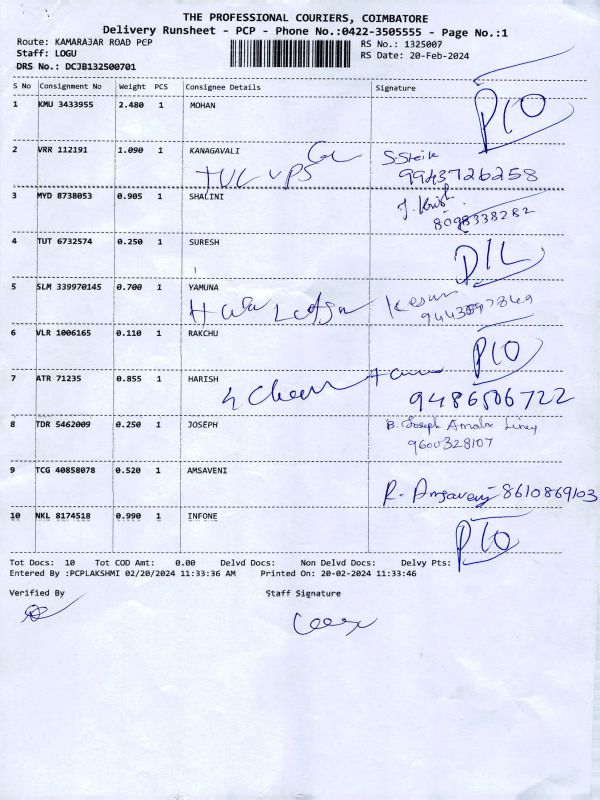 THE PROFESSIONAL COURIERS, COIMBATORE
Delivery Runsheet - PCP - Phone No.:0422-3505555 - Page No.:1
Route: KAMARAJAR ROAD PCP
RS No.: 1325007
Staff: LOGU
RS Date: 20-Feb-2024
DRS No.: DCJB132500701
S No Consignment No Weight PCS Consignee Details Signature
1 KMU 3433955 2.480 1 MOHAN
2 VRR 112191 1.090 1 KANAGAVALI
9943726258
3 MYD 8738053 0.905 1 SHALINI
8098338282
4 TUT 6732574 0.250 1 SURESH
D/L
5 SLM 339970145 0.700 1 YAMUNA
6 VLR 1006165 0.110 1 RAKCHU
7 ATR 71235 0.855 1 HARISH
9486506722
8 TDR 5462009 0.250 1 JOSEPH
B. Joseph
9600328107
9 TCG 40858078 0.520 1 AMSAVENI
R. Amsaveni 8610869103
10 NKL 8174518 0.990 1 INFONE
Tot Docs: 10 Tot COD Amt: 0.00 Delvd Docs: Non Delvd Docs: Delvy Pts:
Entered By :PCPLAKSHMI 02/20/2024 11:33:36 AM Printed On: 20-02-2024 11:33:46
Verified By Staff Signature